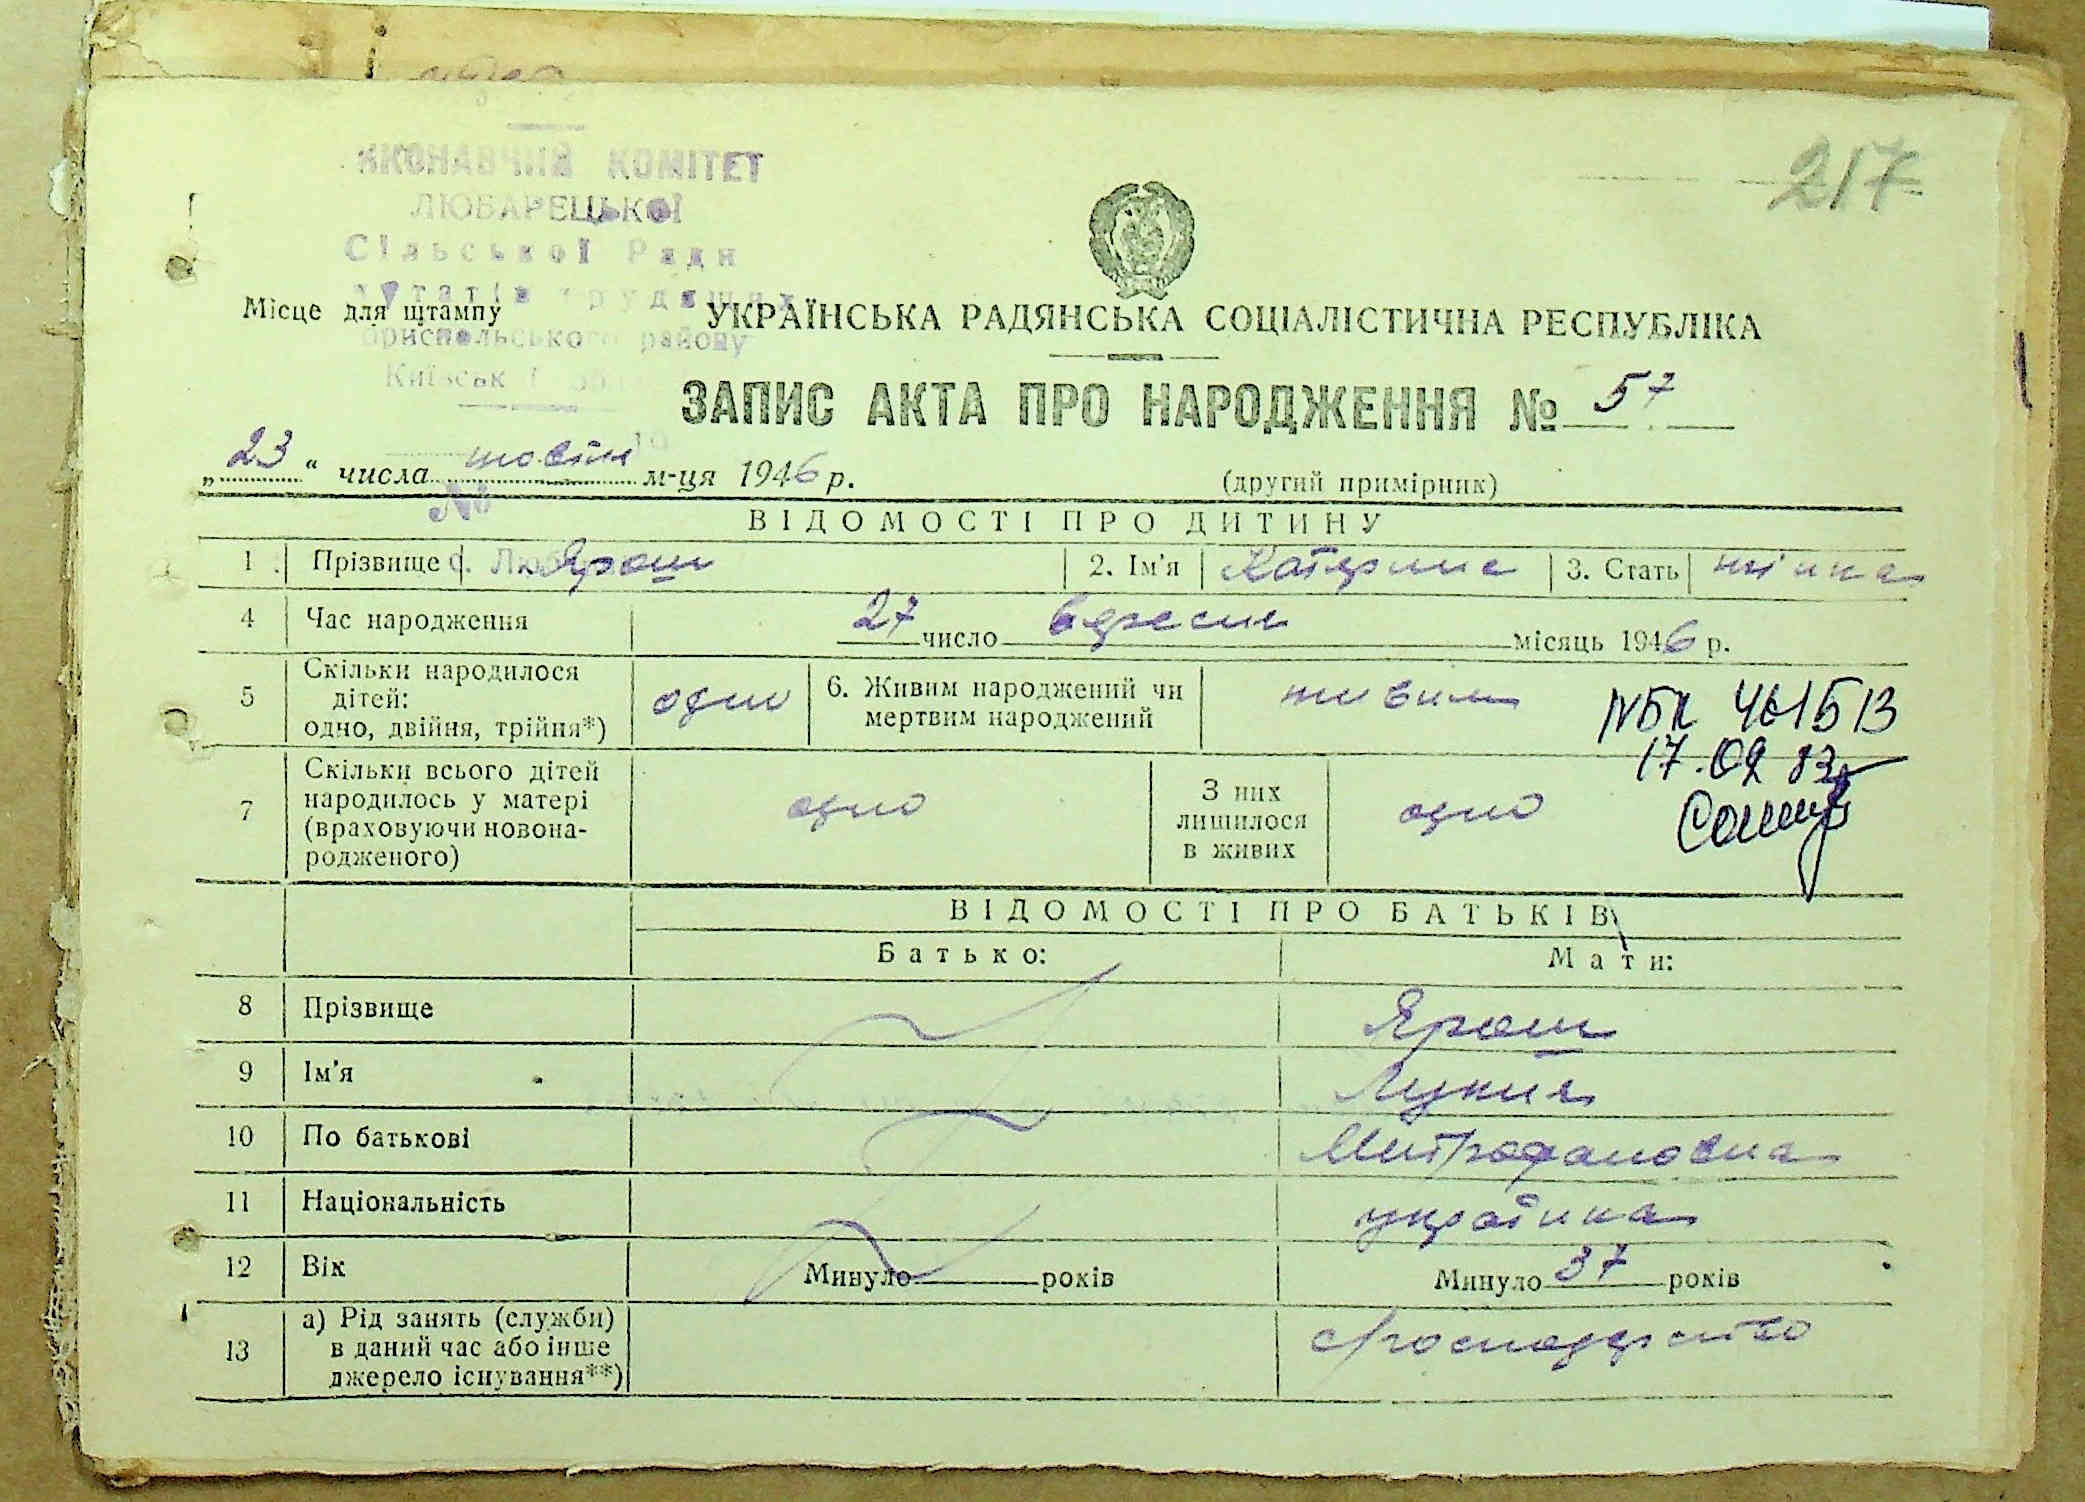 217
ИКОНАВЧИЙ КОМІТЕТ
ЛЮБАРЕЦЬКОЇ
Сільської Ради
Місце для штампу
УКРАЇНСЬКА РАДЯНСЬКА СОЦІАЛІСТИЧНА РЕСПУБЛІКА
району
ЗАПИС АКТА ПРО НАРОДЖЕННЯ № 57
„23“ числа м-ця 1946 р.
(другий примірник)
№
ВІДОМОСТІ ПРО ДИТИНУ
1 Прізвище Ярош 2. Ім'я Катерина 3. Стать жінка
4 Час народження 27 число вересня місяць 1946 р.
5 Скільки народилося дітей: одно, двійня, трійня*) одно 6. Живим народжений чи мертвим народжений живим
17.02.83
7 Скільки всього дітей народилось у матері (враховуючи новонародженого) одно З них лишилося в живих одно
ВІДОМОСТІ ПРО БАТЬКІВ
Батько: Мати:
8 Прізвище Ярош
9 Ім'я Лукия
10 По батькові Митрофановна
11 Національність українка
12 Вік Минуло років Минуло 37 років
13 а) Рід занять (служби) в даний час або інше джерело існування**)